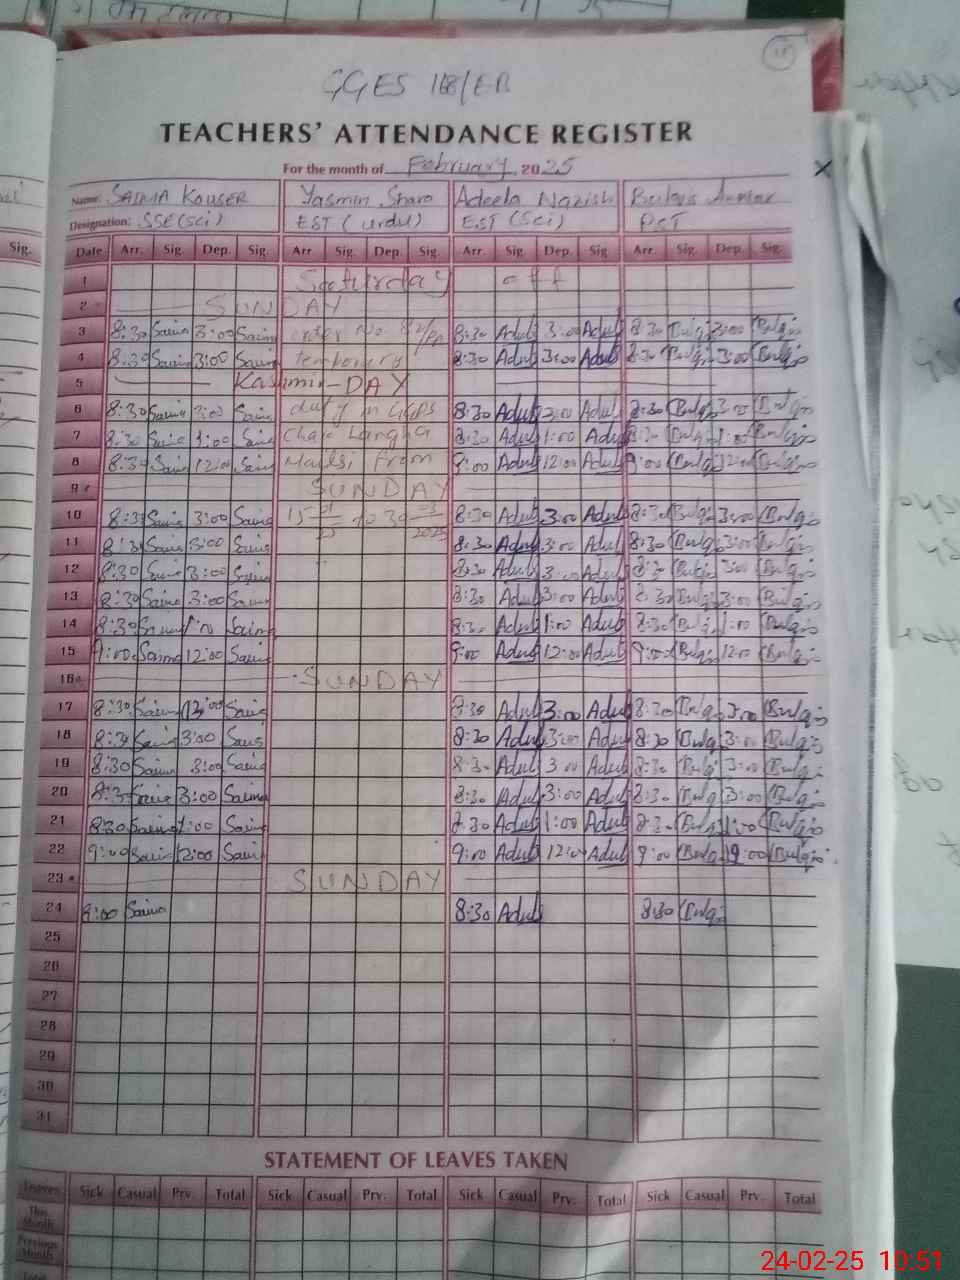 GGES 168/EB
TEACHERS' ATTENDANCE REGISTER
For the month of February, 2025
Name: SAIMA KOUSER Yasmin Adeela Nazish
Designation: SSE(Sci) EST (urdu) EST (Sci) PST
Sig. Date Arr. Sig. Dep. Sig. Arr Sig. Dep. Sig. Arr Sig Dep. Sig Arr. Sig. Dep. Sig.
1 Saturday off
2 SUNDAY
3 8:30 Saima 3:00 Saima order No 8:30 Adul 3:00 Adul 8:30 Bulqis 3:00 Bulqis
4 8:30 Saima 3:00 Saima temporary 8:30 Adul 3:00 Adul 8:30 Bulqis 3:00 Bulqis
5 Kashmir-DAY
6 8:30 Saima 3:00 Saima duty in GGPS 8:30 Adul 3:00 Adul 8:30 Bulqis 3:00 Bulqis
7 8:30 Saima 1:00 Saima Chak Langha 8:30 Adul 1:00 Adul 8:30 Bulqis 1:00 Bulqis
8 8:30 Saima 12:00 Saima Mailsi From 9:00 Adul 12:00 Adul 9:00 Bulqis 12:00 Bulqis
9 SUNDAY
10 8:30 Saima 3:00 Saima 15 to 8:30 Adul 3:00 Adul 8:30 Bulqis 3:00 Bulqis
11 8:30 Saima 3:00 Saima 2025 8:30 Adul 3:00 Adul 8:30 Bulqis 3:00 Bulqis
12 8:30 Saima 3:00 Saima 8:30 Adul 3:00 Adul 8:30 Bulqis 3:00 Bulqis
13 8:30 Saima 3:00 Saima 8:30 Adul 3:00 Adul 8:30 Bulqis 3:00 Bulqis
14 8:30 Saima 1:00 Saima 8:30 Adul 1:00 Adul 8:30 Bulqis 1:00 Bulqis
15 9:00 Saima 12:00 Saima 9:00 Adul 12:00 Adul 9:00 Bulqis 12:00 Bulqis
16 SUNDAY
17 8:30 Saima 3:00 Saima 8:30 Adul 3:00 Adul 8:30 Bulqis 3:00 Bulqis
18 8:30 Saima 3:00 Saima 8:30 Adul 3:00 Adul 8:30 Bulqis 3:00 Bulqis
19 8:30 Saima 3:00 Saima 8:30 Adul 3:00 Adul 8:30 Bulqis 3:00 Bulqis
20 8:30 Saima 3:00 Saima 8:30 Adul 3:00 Adul 8:30 Bulqis 3:00 Bulqis
21 8:30 Saima 1:00 Saima 8:30 Adul 1:00 Adul 8:30 Bulqis 1:00 Bulqis
22 9:00 Saima 12:00 Saima 9:00 Adul 12:00 Adul 9:00 Bulqis Bulqis
23 SUNDAY
24 8:00 Saima 8:30 Adul 8:30 Bulqis
25
26
27
28
29
30
31
STATEMENT OF LEAVES TAKEN
Leaves Sick Casual Prv. Total Sick Casual Prv. Total Sick Casual Prv. Total Sick Casual Prv. Total
This Month
Previous Month
Total
24-02-25 10:51